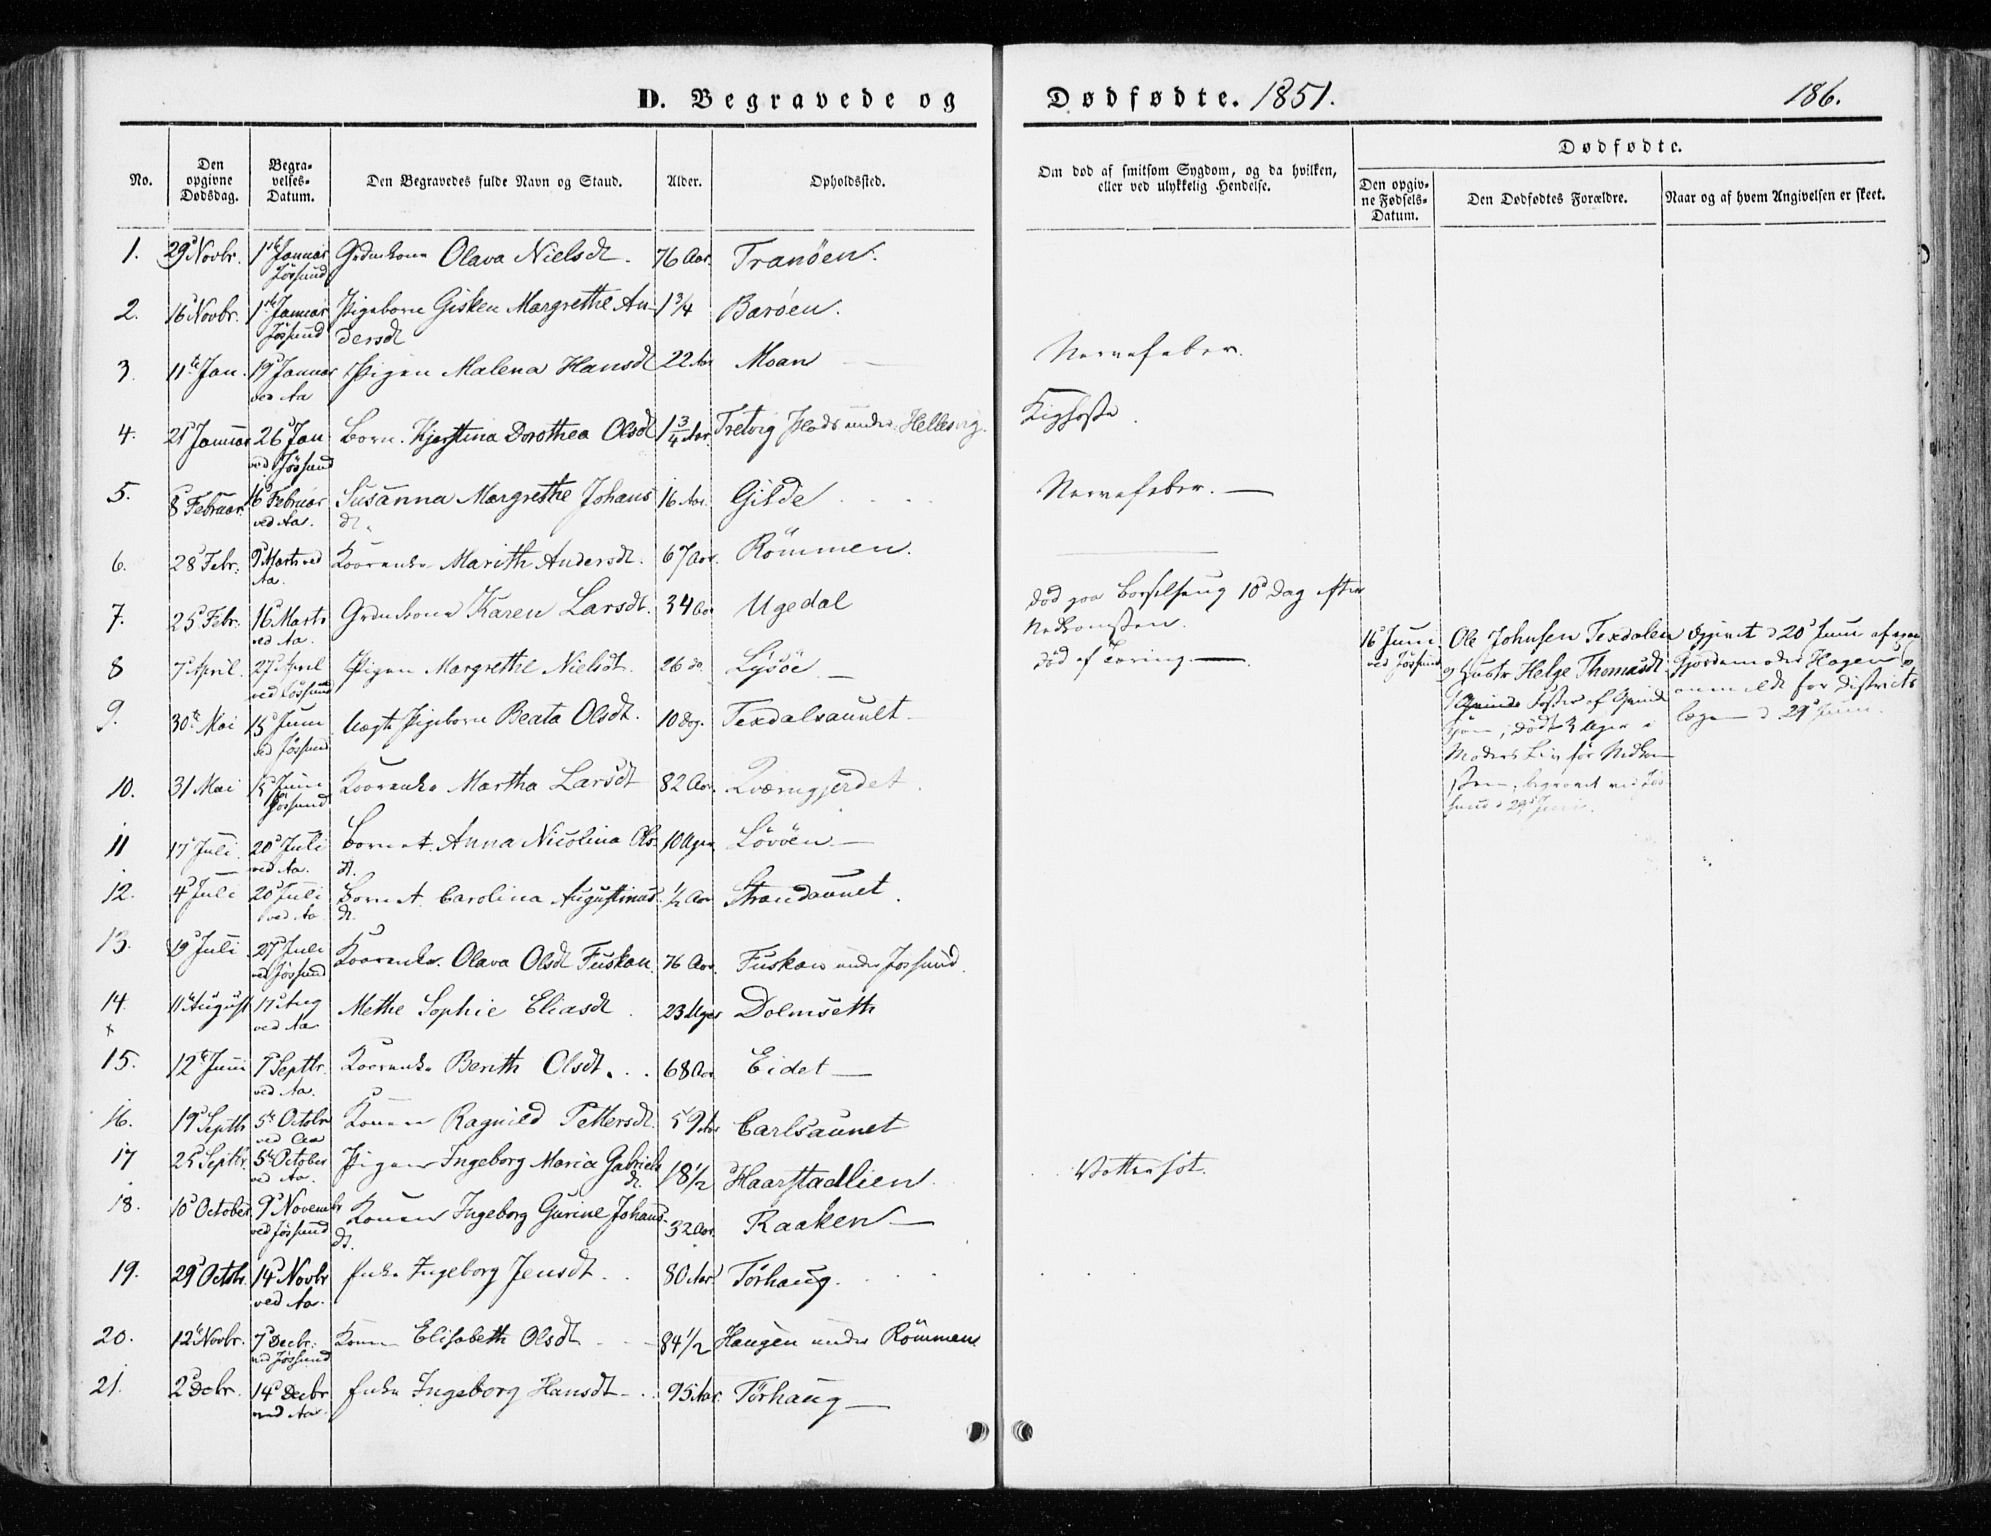 D. Begravede og Dødfødte. 1851. 186.
No.
Den opgivne Dødsdag.
Begravelses-Datum.
Den Begravedes fulde Navn og Stand.
Alder.
Opholdssted.
Om død af smitsom Sygdom, og da hvilken, eller ved ulykkelig Hendelse.
Dødfødte.
Den opgivne Fødsels-Datum.
Den Dødfødtes Forældre.
Naar og af hvem Angivelsen er skeet.
1. 29 Novbr. 1ste Januar Jössund Grdmkone Olava Nielsdt. 76 Aar. Tranöen.
2. 16 Novbr. 1ste Januar Jössund Pigebarn Gisken Margrethe Andersdt 1 3/4 Baröen.
3. 11te Jan. 19 Januar ved Aa Pigen Malena Hansdt 22 Aar Moan — Nervefeber.
4. 21 Januar 26 Jan ved Jössund Barn Kjerstina Dorothea Olsdt 1 3/4 Aar. Tretvig Plads under Hellesvig. Kighoste.
5. 8 Februar. 16 Februar ved Aa. Susanna Margrethe Johansdt. 16 Aar. Gilde Nervefeber. —
6. 28 Febr. 9 Marts ved Aa. Kaarenke Marith Andersdt. 67 Aar. Römmen.
7. 25 Febr. 16 Marts ved Aa. Grdmkone Karen Larsdt. 34 Aar Ugedal Död paa Barselseng 10 Dag efter Nedkomsten.
8 7 April. 27 April ved Jössund Pigen Margrethe Nielsdt. 26 do Lysöe — Död af Tæring —
9. 30te Mai 15 Juni ved Jössund Uægte Pigebarn Beata Olsdt. 10 Dag. Texdalsaunet.
10. 31 Mai 15 Juni Jössund Kaarenke Martha Larsdt 82 Aar. Kværngjerdet.
11 17 Juli 20 Juli ved Aa. Barnet Anna Nicolina Olsdt. 10 Uger Lövöen —
12. 4 Juli 20 Juli ved Aa Barnet Carolina Augustinusdt. 1/2 Aar Strandaunet.
13. 19 Juli 27 Juli ved Jössund Kaarenke. Olava Olsdt Fuskan. 76 Aar. Fuskan under Jössund.
14 x 11 August 17 Aug ved Aa Methe Sophie Eliasdt 23 Uger Dolmseth
15. 12te Juni 7 Septbr. ved Aa. Kaarenke Berith Olsdt. 68 Aar Eidet —
16. 19 Septbr 5te Octobr ved Aa Konen Ragnild Pettersdt. 59 Aar Carlsaunet
17 25 Septbr. 5te October ved Aa. Pigen Ingeborg Maria Gabrielsdt. 18 1/2 Haarstadlien. Vattersot.
18. 10 October 9 Novembr ved Jössund Konen Ingeborg Gurine Johansdt. 32 Aar. Raaken —
19. 29 Octbr. 14 Novbr ved Aa. Enke Ingeborg Jensdt. 80 Aar. Törhaug.
20. 12te Novbr. 7 Decbr. ved Jössund Konen Elisabeth Olsdt 84 1/2 Haugen under Römmen.
21. 2 Decbr. 14 Decbr ved Aa. Enke Ingeborg Hansdt 95 Aar Törhaug —
16 Juni ved Jössund
Ole Johnsen Texdalen
og Hustr Helge Thomasdt.
Foster af
Död 3 Uger i
Moders Liv för Nedkom
sten, begravet ved Jös
sund d 29 Juni.
Opgivet d 20 Juni af
Gjordemoder Hagen
anmeldt for Districts
lægen d 29 Juni.